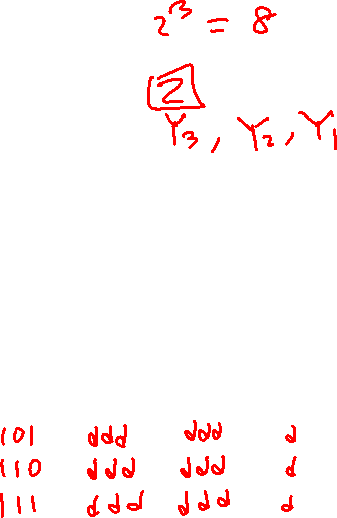 2³ = 8
2
Y₃, Y₂, Y₁
101 ddd ddd d
110 ddd ddd d
111 ddd ddd d